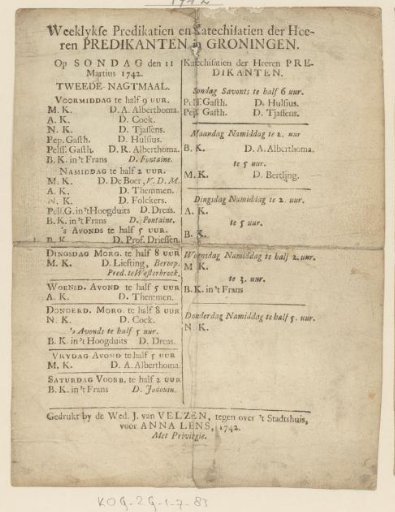 1742
Weeklykse Predikatien en Catechisatien der Hee-
ren PREDIKANTEN in GRONINGEN.
Op SONDAG den 11
Martius 1742.
TWEEDE NAGTMAAL.
VOORMIDDAG te half 9 uur.
M. K. D. A. Alberthoma.
A. K. D. Cock.
N. K. D. Tjassens.
Pep. Gasth. D. Hulsius.
Pelsf. Gasth. D. R. Alberthoma.
B. K. in't Frans D. Fontaine.
NAMIDDAG te half 2 uur.
M. K. D. De Boer, V. D. M.
A. K. D. Themmen.
N. K. D. Folckers.
Pels. G. in't Hoogduits D. Dreas.
B. K. in't Frans D. Fontaine.
's AVONDS te 5 uur.
B. K. D. Prof. Driessen.
DINGSDAG MORG. te half 8 uur
M. K. D. Liefting, Beroep.
Pred. te
WOENSD. AVOND te half 5 uur
A. K. D. Themmen.
DONDERD. MORG. te half 8 uur
N. K. D. Cock.
's Avonds te half 5 uur.
B. K. in't Hoogduits D. Dreas.
VRYDAG AVOND te half 5 uur
M. K. D. A. Alberthoma.
SATURDAG VOORB. te half 2 uur
B. K. in't Frans D.
Katechisatien der Heeren PRE-
DIKANTEN.
Sondag Savonts te half 6 uur.
Pelsf. Gasth. D. Hulsius.
Pep. Gasth. D. Tjassens.
Maandag Namiddag te 2. uur
B. K. D. A. Alberthoma.
te 5 uur.
M. K. D. Bertling.
Dingsdag Namiddag te 2. uur.
A. K.
te 5 uur.
B. K.
Woensdag Namiddag te half 2. uur.
M. K.
te 3. uur.
B. K. in't Frans
Donderdag Namiddag te half 5. uur.
N. K.
Gedrukt by de Wed. J. van VELZEN, tegen over 't Stadtshuis,
voor ANNA LENS, 1742.
Met Privilegie.
KOG-ZG-1-7-83